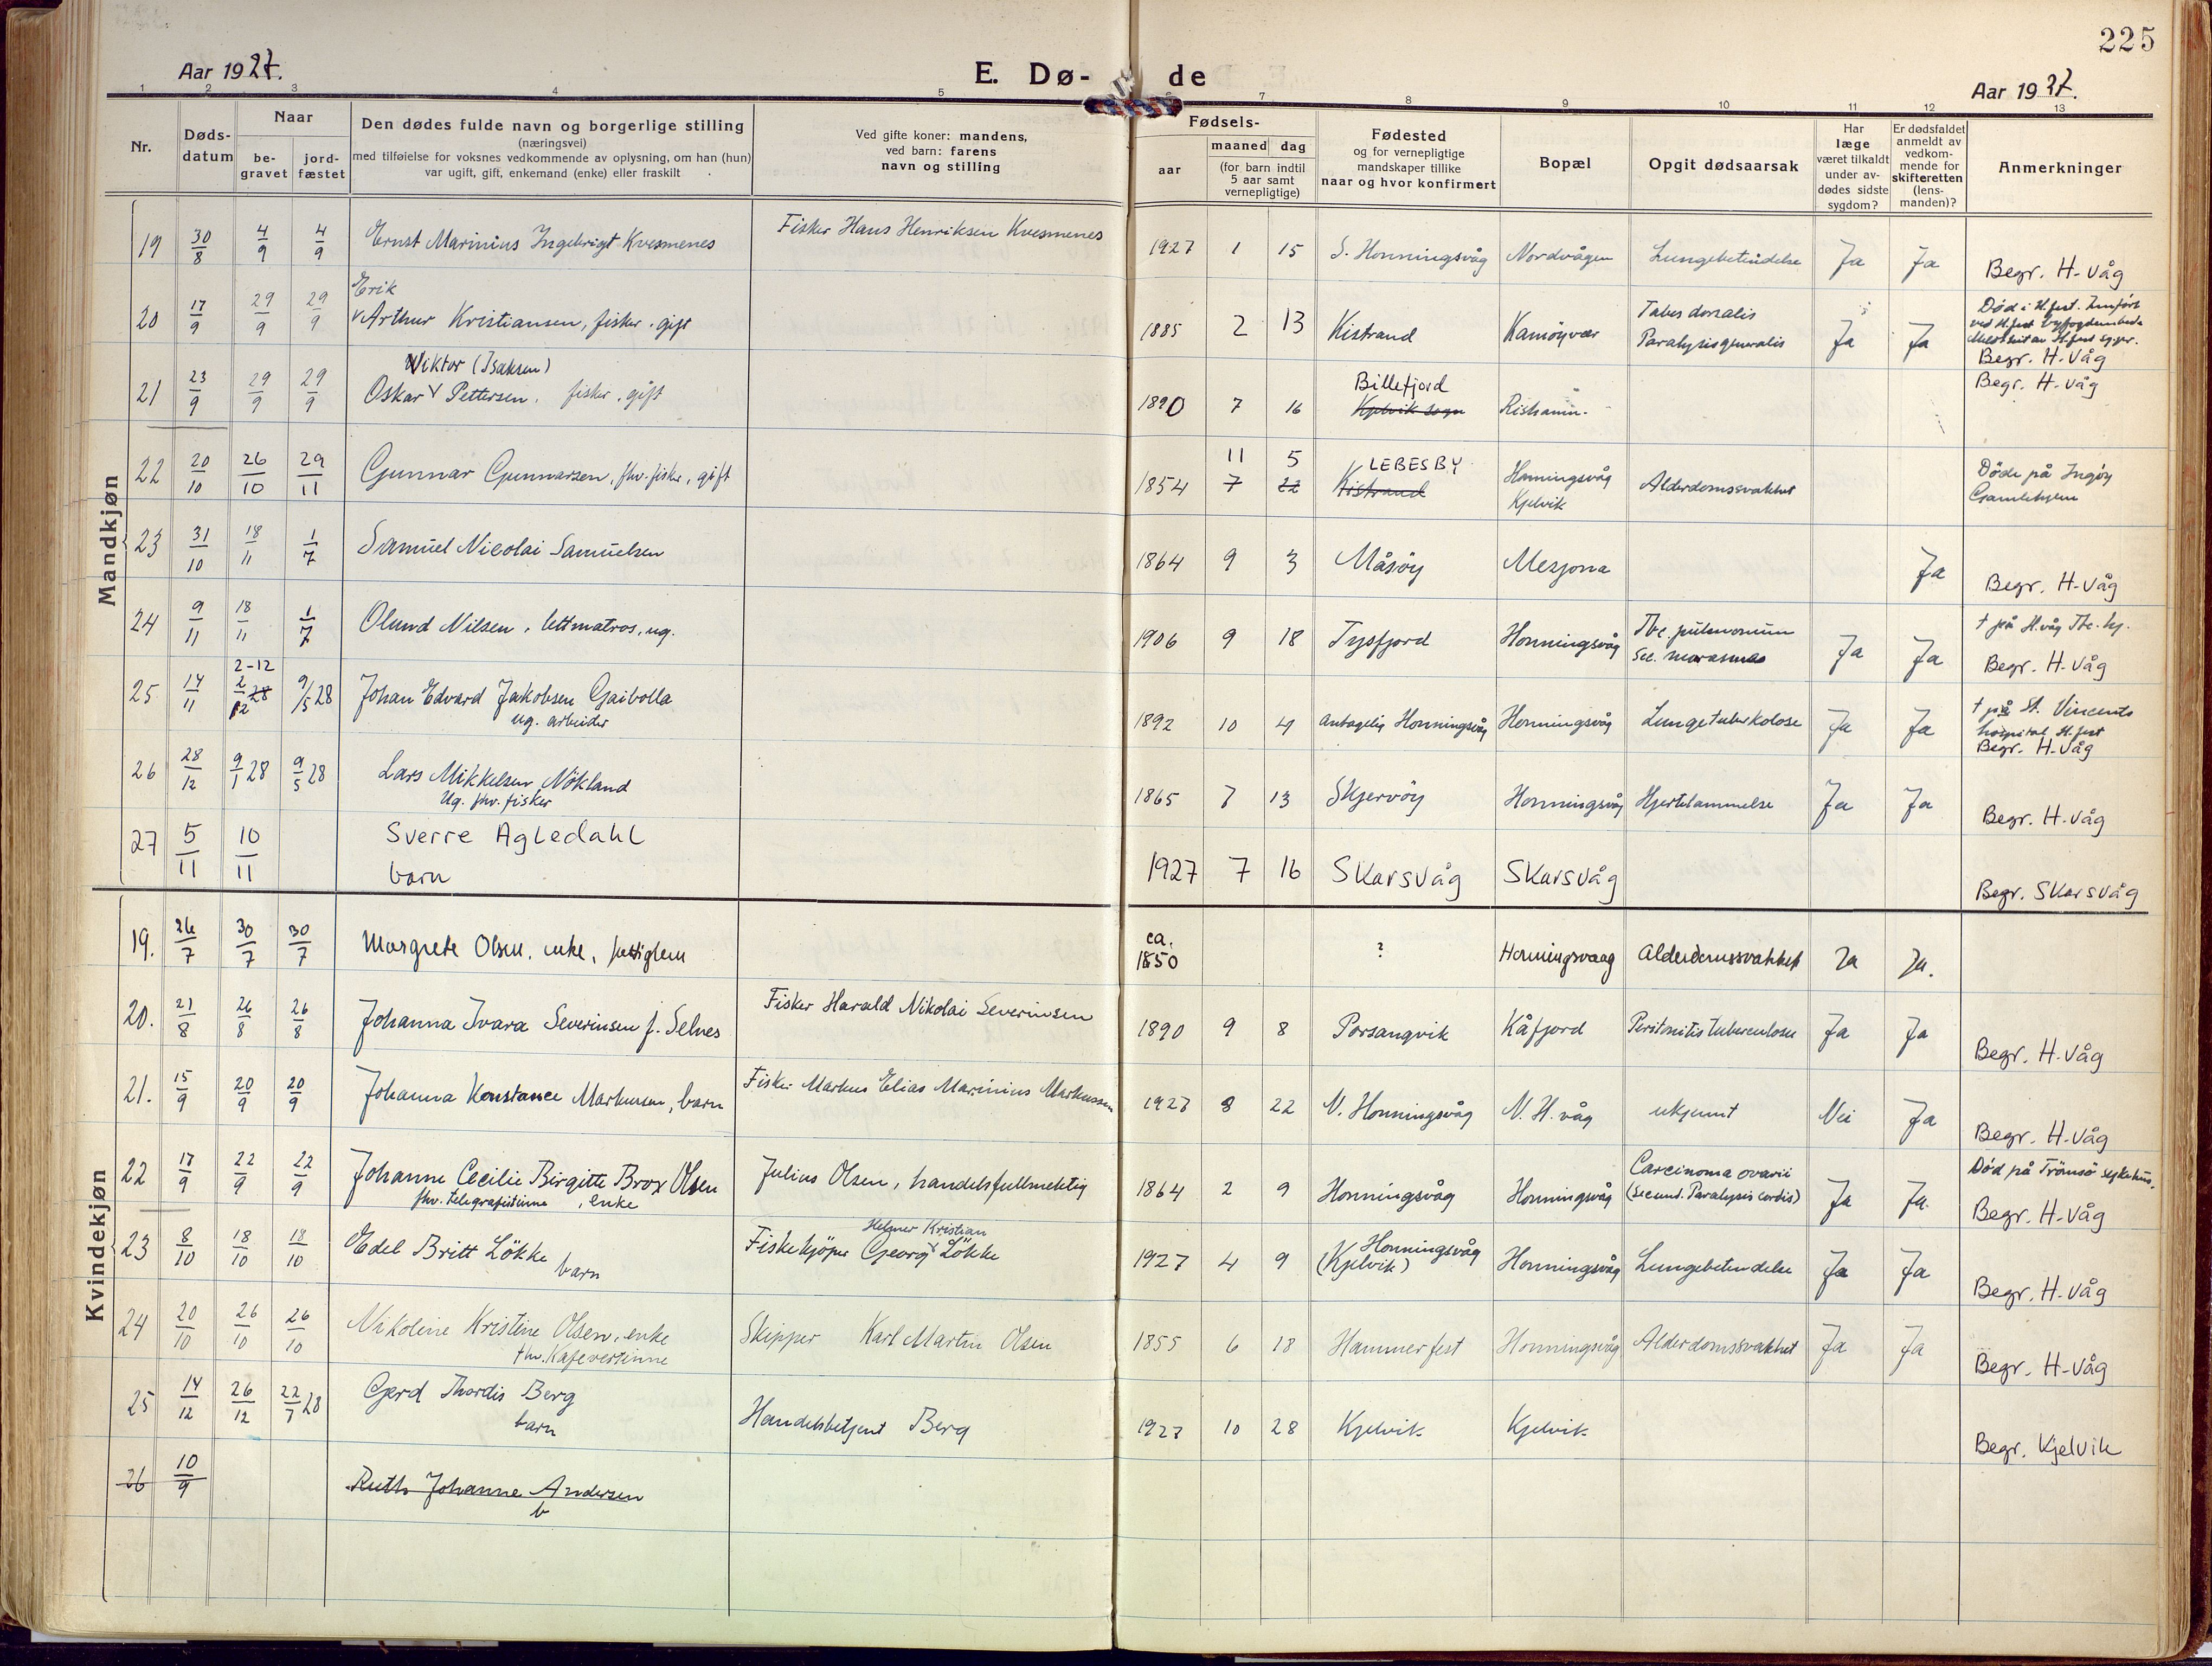 225
Aar 1927.
E. Dø- de
Aar 1927.
1 2 3 4 5 6 7 8 9 10 11 12 13
Nr.
Døds-datum
Naar
be-gravet
jord-fæstet
Den dødes fulde navn og borgerlige stilling
(næringsvei)
med tilføielse for voksnes vedkommende av oplysning, om han (hun)
var ugift, gift, enkemand (enke) eller fraskilt
Ved gifte koner: mandens,
ved barn: farens
navn og stilling
Fødsels-
aar
maaned dag
(for barn indtil
5 aar samt
vernepligtige)
Fødested
og for vernepligtige
mandskaper tillike
naar og hvor konfirmert
Bopæl
Opgit dødsaarsak
Har
læge
været tilkaldt
under av-
dødes sidste
sygdom?
Er dødsfaldet
anmeldt av
vedkom-
mende for
skifteretten
(lens-
manden)?
Anmerkninger
Mandkjøn
19 30/8 4/9 4/9 Ernst Marinius Ingebrigt Kvesmenes Fisker Hans Henriksen Kvesmenes 1927 1 15 S. Honningsvåg Nordvågen Lungebetendelse Ja Ja Begr. H-Våg
Erik
20 17/9 29/9 29/9 Arthur Kristiansen, fisker, gift 1885 2 13 Kistrand Kamöyvær Tabes dorsalis
Paralysis generalis Ja Ja Død i H.fest.
Begr. H-Våg
Viktor (Isaksen)
21 23/9 29/9 29/9 Oskar Pettersen, fisker, gift 1890 7 16 Billefjord
Kjelvik sogn Begr. H-Våg
22 20/10 26/10 29/11 Gunnar Gunnarsen, fhv. fisker, gift 1854 11 5
7 22 LEBESBY
Kistrand Honningsvåg
Kjelvik Alderdomssvakhet Döde på Ingöy
Gamlehjem
23 31/10 18/11 1/7 Samuel Nicolai Samuelsen 1864 9 3 Måsöy Mesjona Ja Begr. H-Våg
24 9/11 18/11 1/7 Olund Nilsen, lettmatros, ug. 1906 9 18 Tysfjord Honningsvåg Tbc. pulmonum
Sec. marasmus Ja Ja † på H.våg Tbc. hj.
Begr. H-Våg
2-12
25 14/11 2/12 28 9/5 28 Johan Edvard Jakobsen Gaibolla
ug. arbeider 1892 10 4 antagelig Honningsvåg Honningsvåg Lungetuberkolose Ja Ja † på St. Vincents
hospital H.fest
Begr. H-Våg
26 28/12 9/1 28 9/5 28 Lars Mikkelsen Nökland
Ug. fhv. fisker 1865 7 13 Skjervöy Honningsvåg Hjertelammelse Ja Ja Begr. H-Våg
27 5/11 10/11 Sverre Agledahl
barn 1927 7 16 Skarsvåg Skarsvåg Begr. Skarsvåg
Kvindekjøn
19. 26/7 30/7 30/7 Margrete Olsen, enke, fattiglem ca.
1850 ? Honningsvaag Alderdomssvakhet Ja Ja.
20. 21/8 26/8 26/8 Johanna Ivara Severinsen f. Selnes Fisker Harald Nikolai Severinsen 1890 9 8 Porsangvik Kåfjord Peritonitis tuberculosa Ja Ja Begr. H-Våg
21. 15/9 20/9 20/9 Johanna Konstance Markussen, barn Fisker Markus Elias Marinius Markussen 1927 8 22 N. Honningsvåg N. H.våg ukjennt Nei Ja Begr. H-Våg
22 17/9 22/9 22/9 Johanne Cecilie Birgitte Brox Olsen
fhv. telegrafistinne, enke Julius Olsen, handelsfullmektig 1864 2 9 Honningsvåg Honningsvåg Carcinoma ovarii
(secund. Paralysis cordis) Ja Ja Død på Trömsö sykehus.
Begr. H-Våg
23 8/10 18/10 18/10 Edel Britt Lökke
barn Helmer Kristian
Fiskekjöper Georg Lökke 1927 4 9 Honningsvåg
(Kjelvik) Honningsvåg Lungebetendelse Ja Ja Begr. H-Våg
24 20/10 26/10 26/10 Nikoline Kristine Olsen, enke
fhv. Kafevertinne Skipper Karl Martin Olsen 1855 6 18 Hammerfest Honningsvåg Alderdomssvakhet Ja Ja Begr. H-Våg
25 14/12 26/12 22/7 28 Gerd Thordis Berg
barn Handelsbetjent Berg 1927 10 28 Kjelvik Kjelvik Begr. Kjelvik
26 10/9 Ruth Johanne Andersen
b